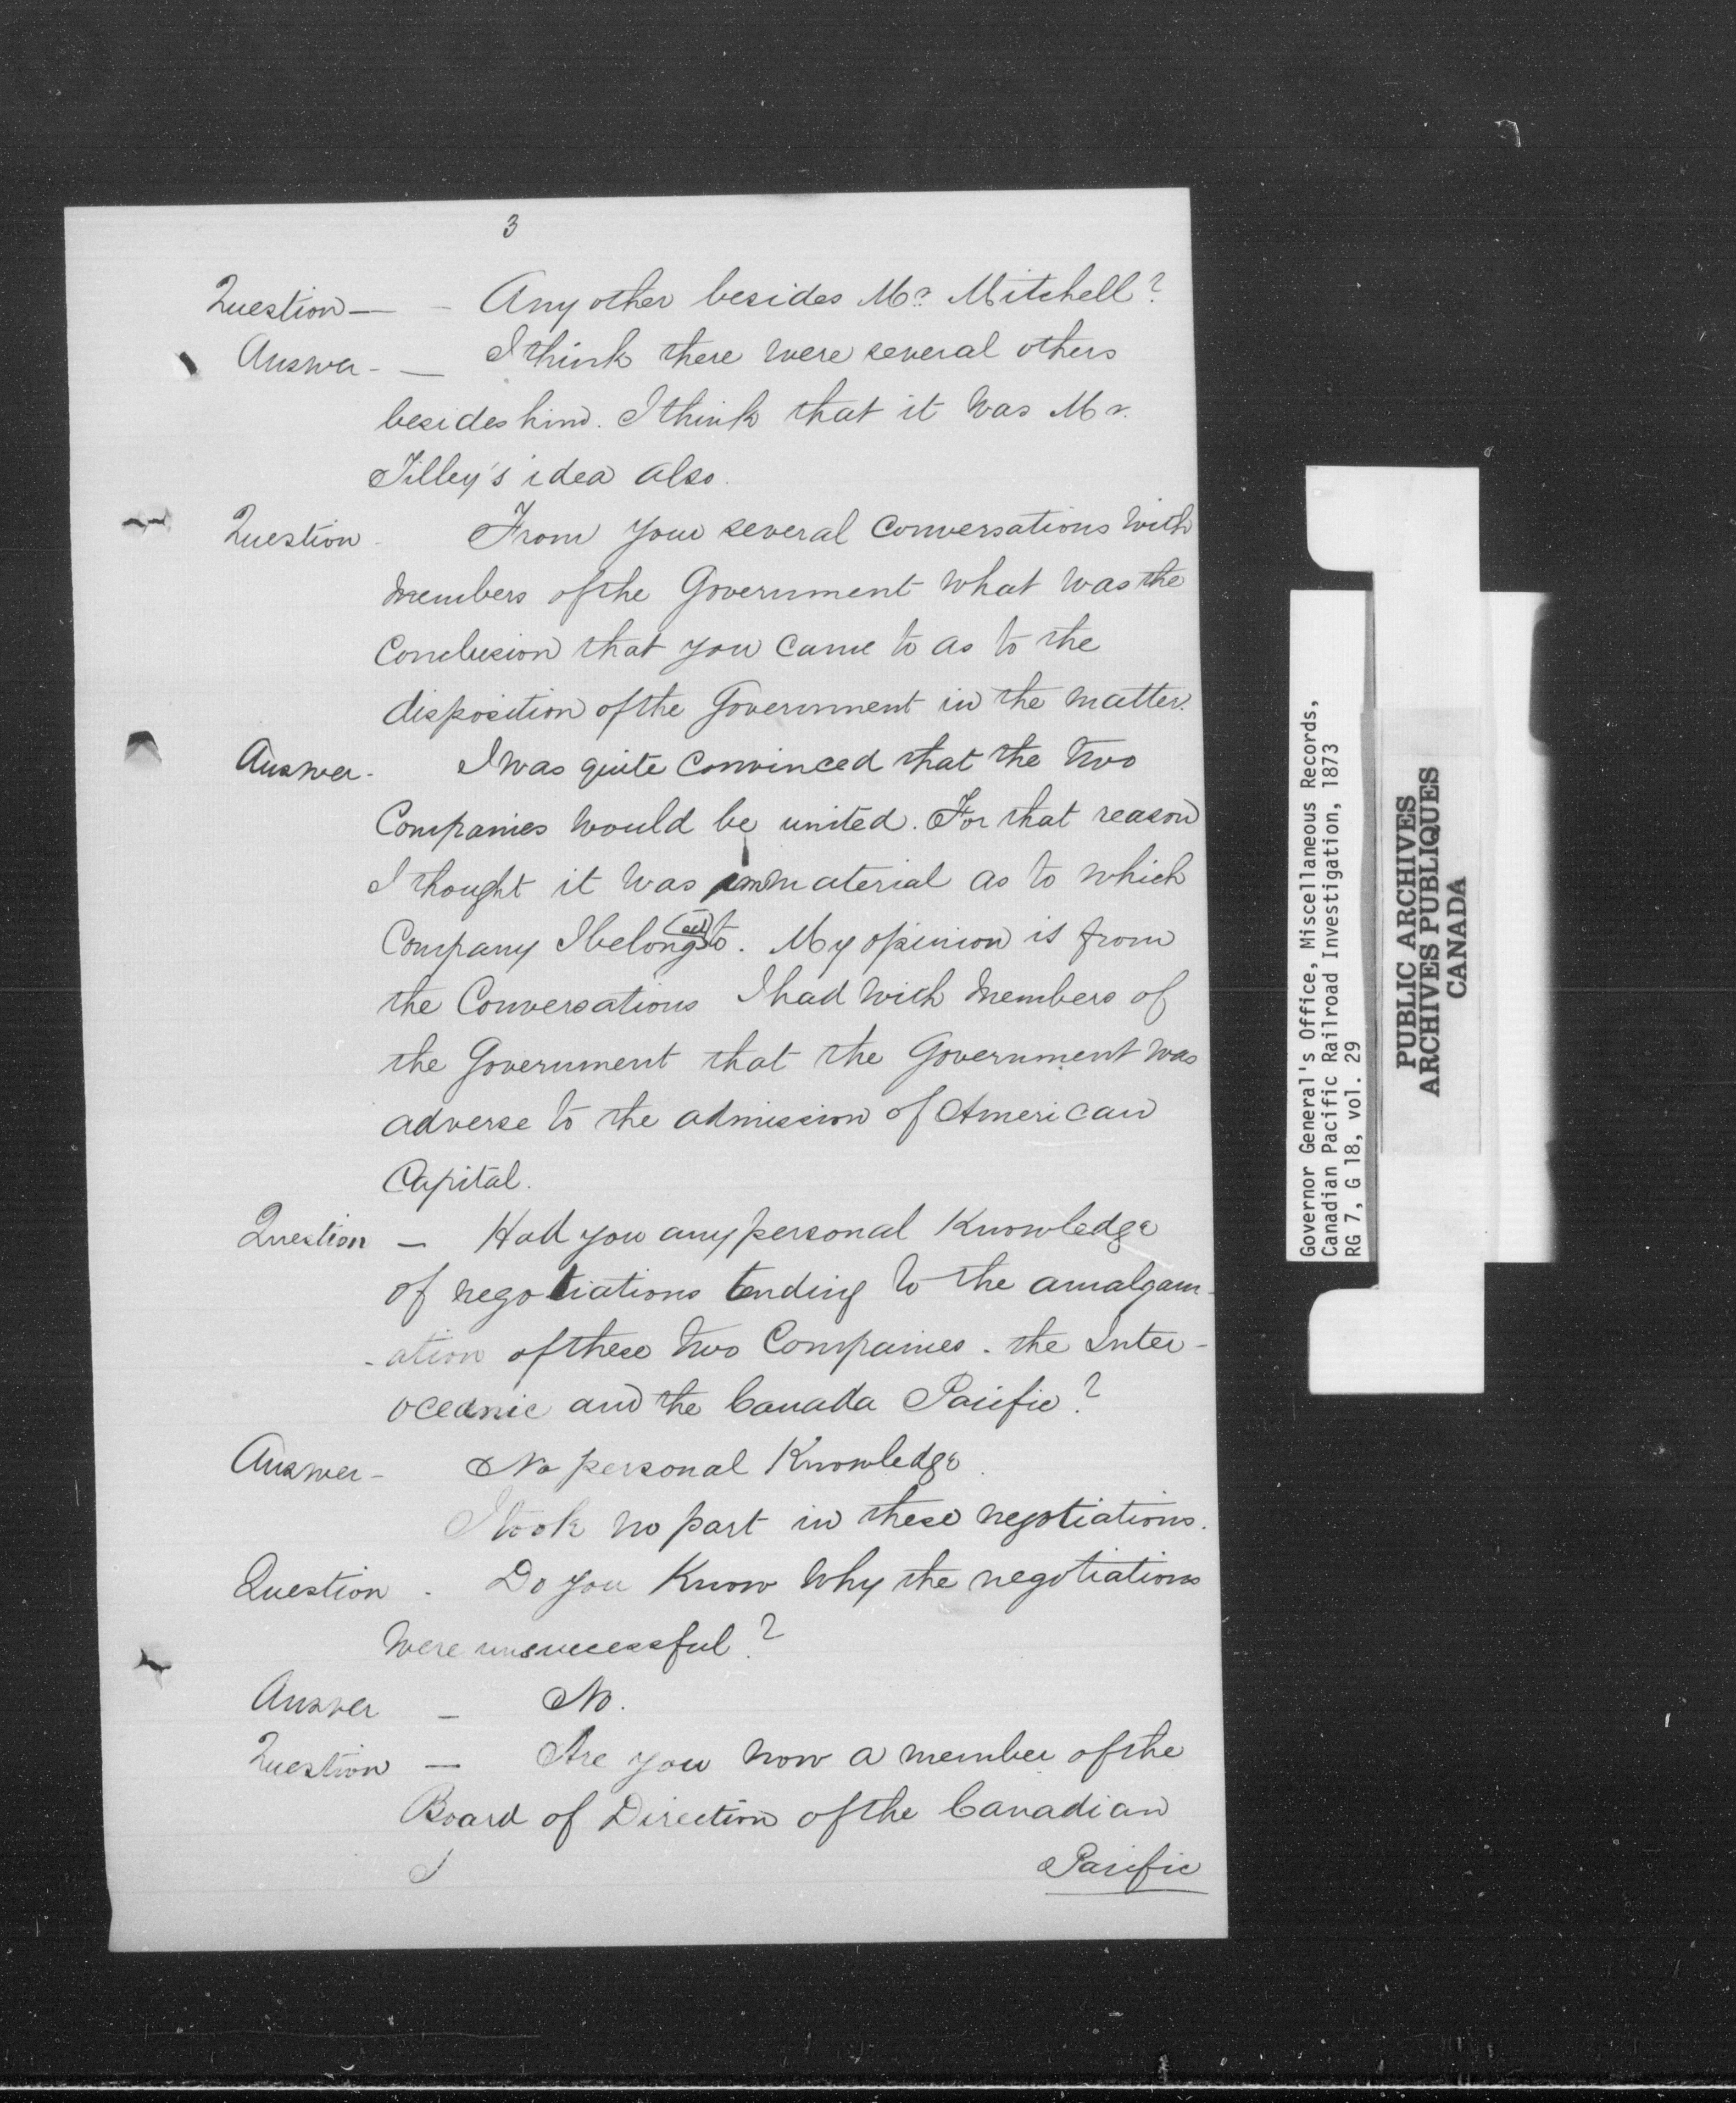 3
Question — - Any other besides Mr. Mitchell?
Answer - — I think there were several others
besides him. I think that it was Mr.
Tilley's idea also.
Question - From your several Conversations with
members of the Government what was the
Conclusion that you came to as to the
disposition of the Government in the matter.
Answer - I was quite convinced that the two
Companies would be united. For that reason
I thought it was immaterial as to which
Company I belonged to. My opinion is from
the Conversations I had with members of
the Government that the Government was
adverse to the admission of American
Capital.
Question — Had you any personal Knowledge
of negotiations tending to the amalgam-
-ation of these two Companies - the Inter-
oceanic and the Canada Pacific?
Answer - No personal Knowledge.
I took no part in these negotiations.
Question - Do you Know why the negotiations
were unsuccessful?
Answer - No.
Question — Are you now a member of the
Board of Direction of the Canadian
Pacific
Governor General's Office, Miscellaneous Records,
Canadian Pacific Railroad Investigation, 1873
RG 7, G 18, vol. 29
PUBLIC ARCHIVES
ARCHIVES PUBLIQUES
CANADA